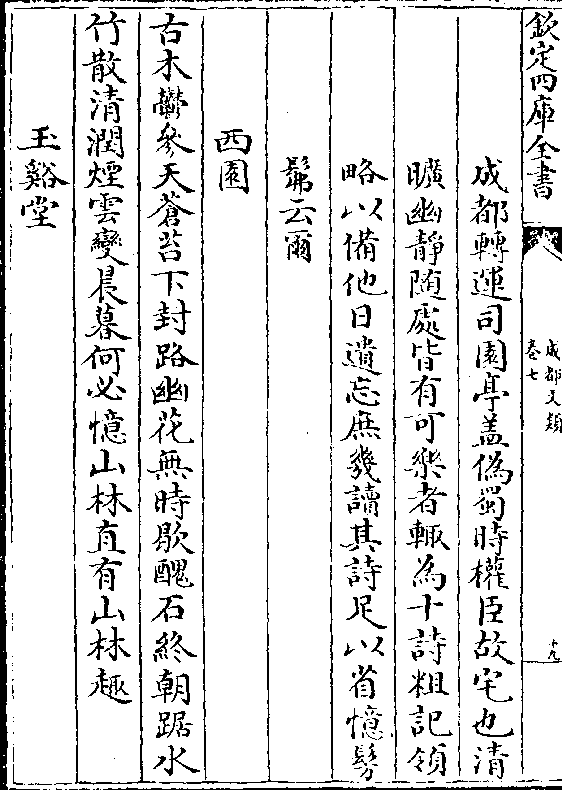 欽定四庫全書
成都文類
卷七
十九
成都轉運司園亭蓋僞蜀時權臣故宅也清
曠幽靜随處皆有可樂者輙為十詩粗記領
略以備他日遺忘庶幾讀其詩足以省憶髣
髴云爾
西園
古木鬱參天蒼苔下封路幽花無時歇醜石終朝踞水
竹散清潤煙雲變晨暮何必憶山林直有山林趣
玉谿堂